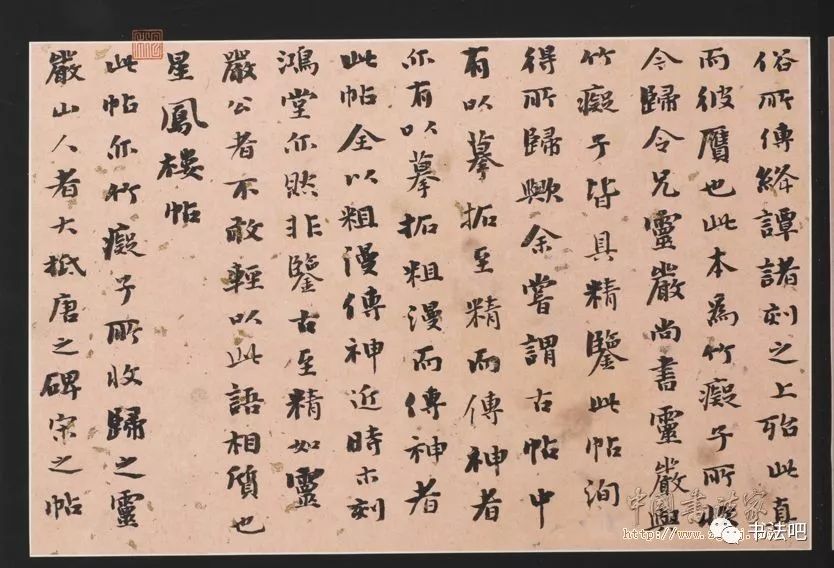 俗所傳絳譚諸刻之上殆此真
而彼贋也此本為竹癡子所收
今歸令兄靈巖尚書靈巖與
竹癡子皆具精鑒此帖洵
得所歸歟余嘗謂古帖中
有以摹拓至精而傳神者
亦有以摹拓粗漫而傳神者
此帖全以粗漫傳神近時木刻
鴻堂亦然非鑒古至精如靈
巖公者不敢輕以此語相質也
星鳳樓帖
此帖亦竹癡子所收歸之靈
巖山人者大抵唐之碑宋之帖
中国书法家
书法吧